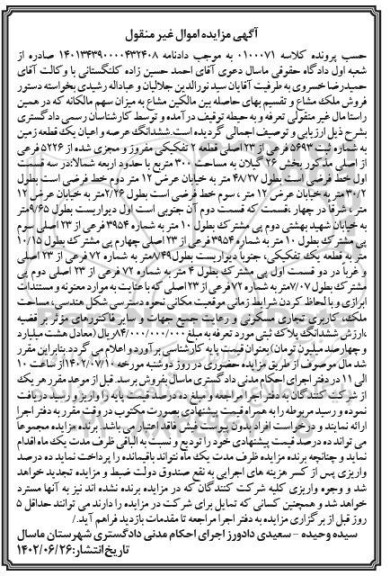 آگهی مزایده اموال غیر منقول
حسب پرونده کلاسه ۰۱۰۰۰۷۱ به موجب دادنامه ۱۴۰۱۳۴۳۹۰۰۰۰۴۳۲۴۰۸ صادره از
شعبه اول دادگاه حقوقی ماسال دعوی آقای احمد حسین زاده کلنگستانی با وکالت آقای
حمیدرضا خسروی به طرفیت آقایان سید نورالدین جلالیان و عبداله رشیدی بخواسته دستور
فروش ملک مشاع و تقسیم بهای حاصله بین مالکین مشاع به میزان سهم مالکانه که در همین
راستا مال غیر منقولی تعرفه و به حیطه توقیف در آمده و توسط کارشناسان رسمی دادگستری
بشرح ذیل ارزیابی و توصیف اجمالی گردیده است.ششدانگ عرصه و اعیان یک قطعه زمین
به شماره ثبت ۵۶۹۳ فرعی از ۲۳ اصلی قطعه ۲ تفکیکی مفروز و مجزی شده از ۵۲۲۶ فرعی
از اصلی مذکور بخش ۲۶ گیلان به مساحت ۳۰۰ متر مربع با حدود اربعه شمالا:در سه قسمت
اول خط فرضی است بطول ۴۸/۷۷ متر به خیابان عرض ۱۲ متر دوم خط فرضی است بطول
۳۰/۲ متر به خیابان عرض ۱۲ متر ، سوم خط فرضی است بطول ۲/۲۶متر به خیابان ۱۲
متر ، شرقا در چهار ،قسمت که قسمت دوم آن جنوبی است اول دیواریست بطول ۹/۶۵متر
به خیابان شهید بهشتی دوم پی مشترک بطول ۱۰ متر به شماره ۳۹۵۴ فرعی از ۲۳ اصلی سوم
پی مشترک بطول ۱۰ متر به شماره ۳۹۵۴ فرعی از ۲۳ اصلی چهارم پی مشترک بطول ۱۰/۱۵
متر به قطعه یک تفکیکی، جنوبا دیواریست بطول۷/۴۹متر به شماره ۷۲ فرعی از ۲۳ اصلی
و غربا در دو قسمت اول پی مشترک بطول ۴ متر به شماره ۷۲ فرعی از ۲۳ اصلی دوم پی
مشترک بطول۷/۰۷متر به شماره ۷۲ فرعی از ۲۳ اصلی که با عنایت به موارد معنونه و مستندات
ابرازی و با لحاظ کردن شرایط زمانی موقعیت مکانی نحوه دسترسی شکل هندسی، مساحت
ملک، کاربری تجاری مسکونی و رعایت جمیع جهات و سایر فاکتورهای مؤثر بر قضیه
،ارزش ششدانگ پلاک ثبتی مورد تعرفه به مبلغ ۸۴/۰۰۰/۰۰۰/۰۰۰ریال (معادل هشت میلیارد
و چهارصد میلیون تومان) بعنوان قیمت پایه کارشناسی برآورد و اعلام می گردد.بنابراین مقرر
شد مال مرصوف از طریق مزایده حضوری در روز دوشنبه مورخه ۱۴۰۲/۰۷/۱۰از ساعت ۱۰
الی ۱۱ در دفتر اجرای احکام مدنی دادگستری ماسال بفروش برسد. قبل از موعد مقرر هر یک
از شرکت کنندگان به دفتر اجرا مراجعه و مبلغ ده درصد قیمت پایه را واریز و رسید دریافت
نموده و رسید مربوطه را به همراه قیمت پیشنهادی بصورت مکتوب در وقت مقرر به دفتر اجرا
ارائه نمایند و درخواست افراد بدون پیوست فیش فاقد اعتبار می باشد. برنده مزایده مجموعاً
می تواند ده درصد قیمت پیشنهادی خود را تودیع و نسبت به الباقی ظرف مدت یک ماه اقدام
نماید و چنانچه برنده مزایده ظرف مدت یک ماه نتواند باقیمانده را پرداخت نماید ده درصد
واریزی پس از کسر هزینه های اجرایی به نفع صندوق دولت ضبط و مزایده تجدید خواهد
شد و وجوه واریزی کلیه شرکت کنندگان که در مزایده برنده نشده اند نیز به آنها مسترد
خواهد شد و همچنین کسانی که تمایل برای شرکت در مزایده را دارند می توانند حداقل ۵
روز قبل از برگزاری مزایده به دفتر اجرا مراجعه تا مقدمات بازدید فراهم آید./
سیده وحیده – سعیدی دادورز اجرای احکام مدنی دادگستری شهرستان ماسال
تاریخ انتشار: ۱۴۰۲/۰۶/۲۶